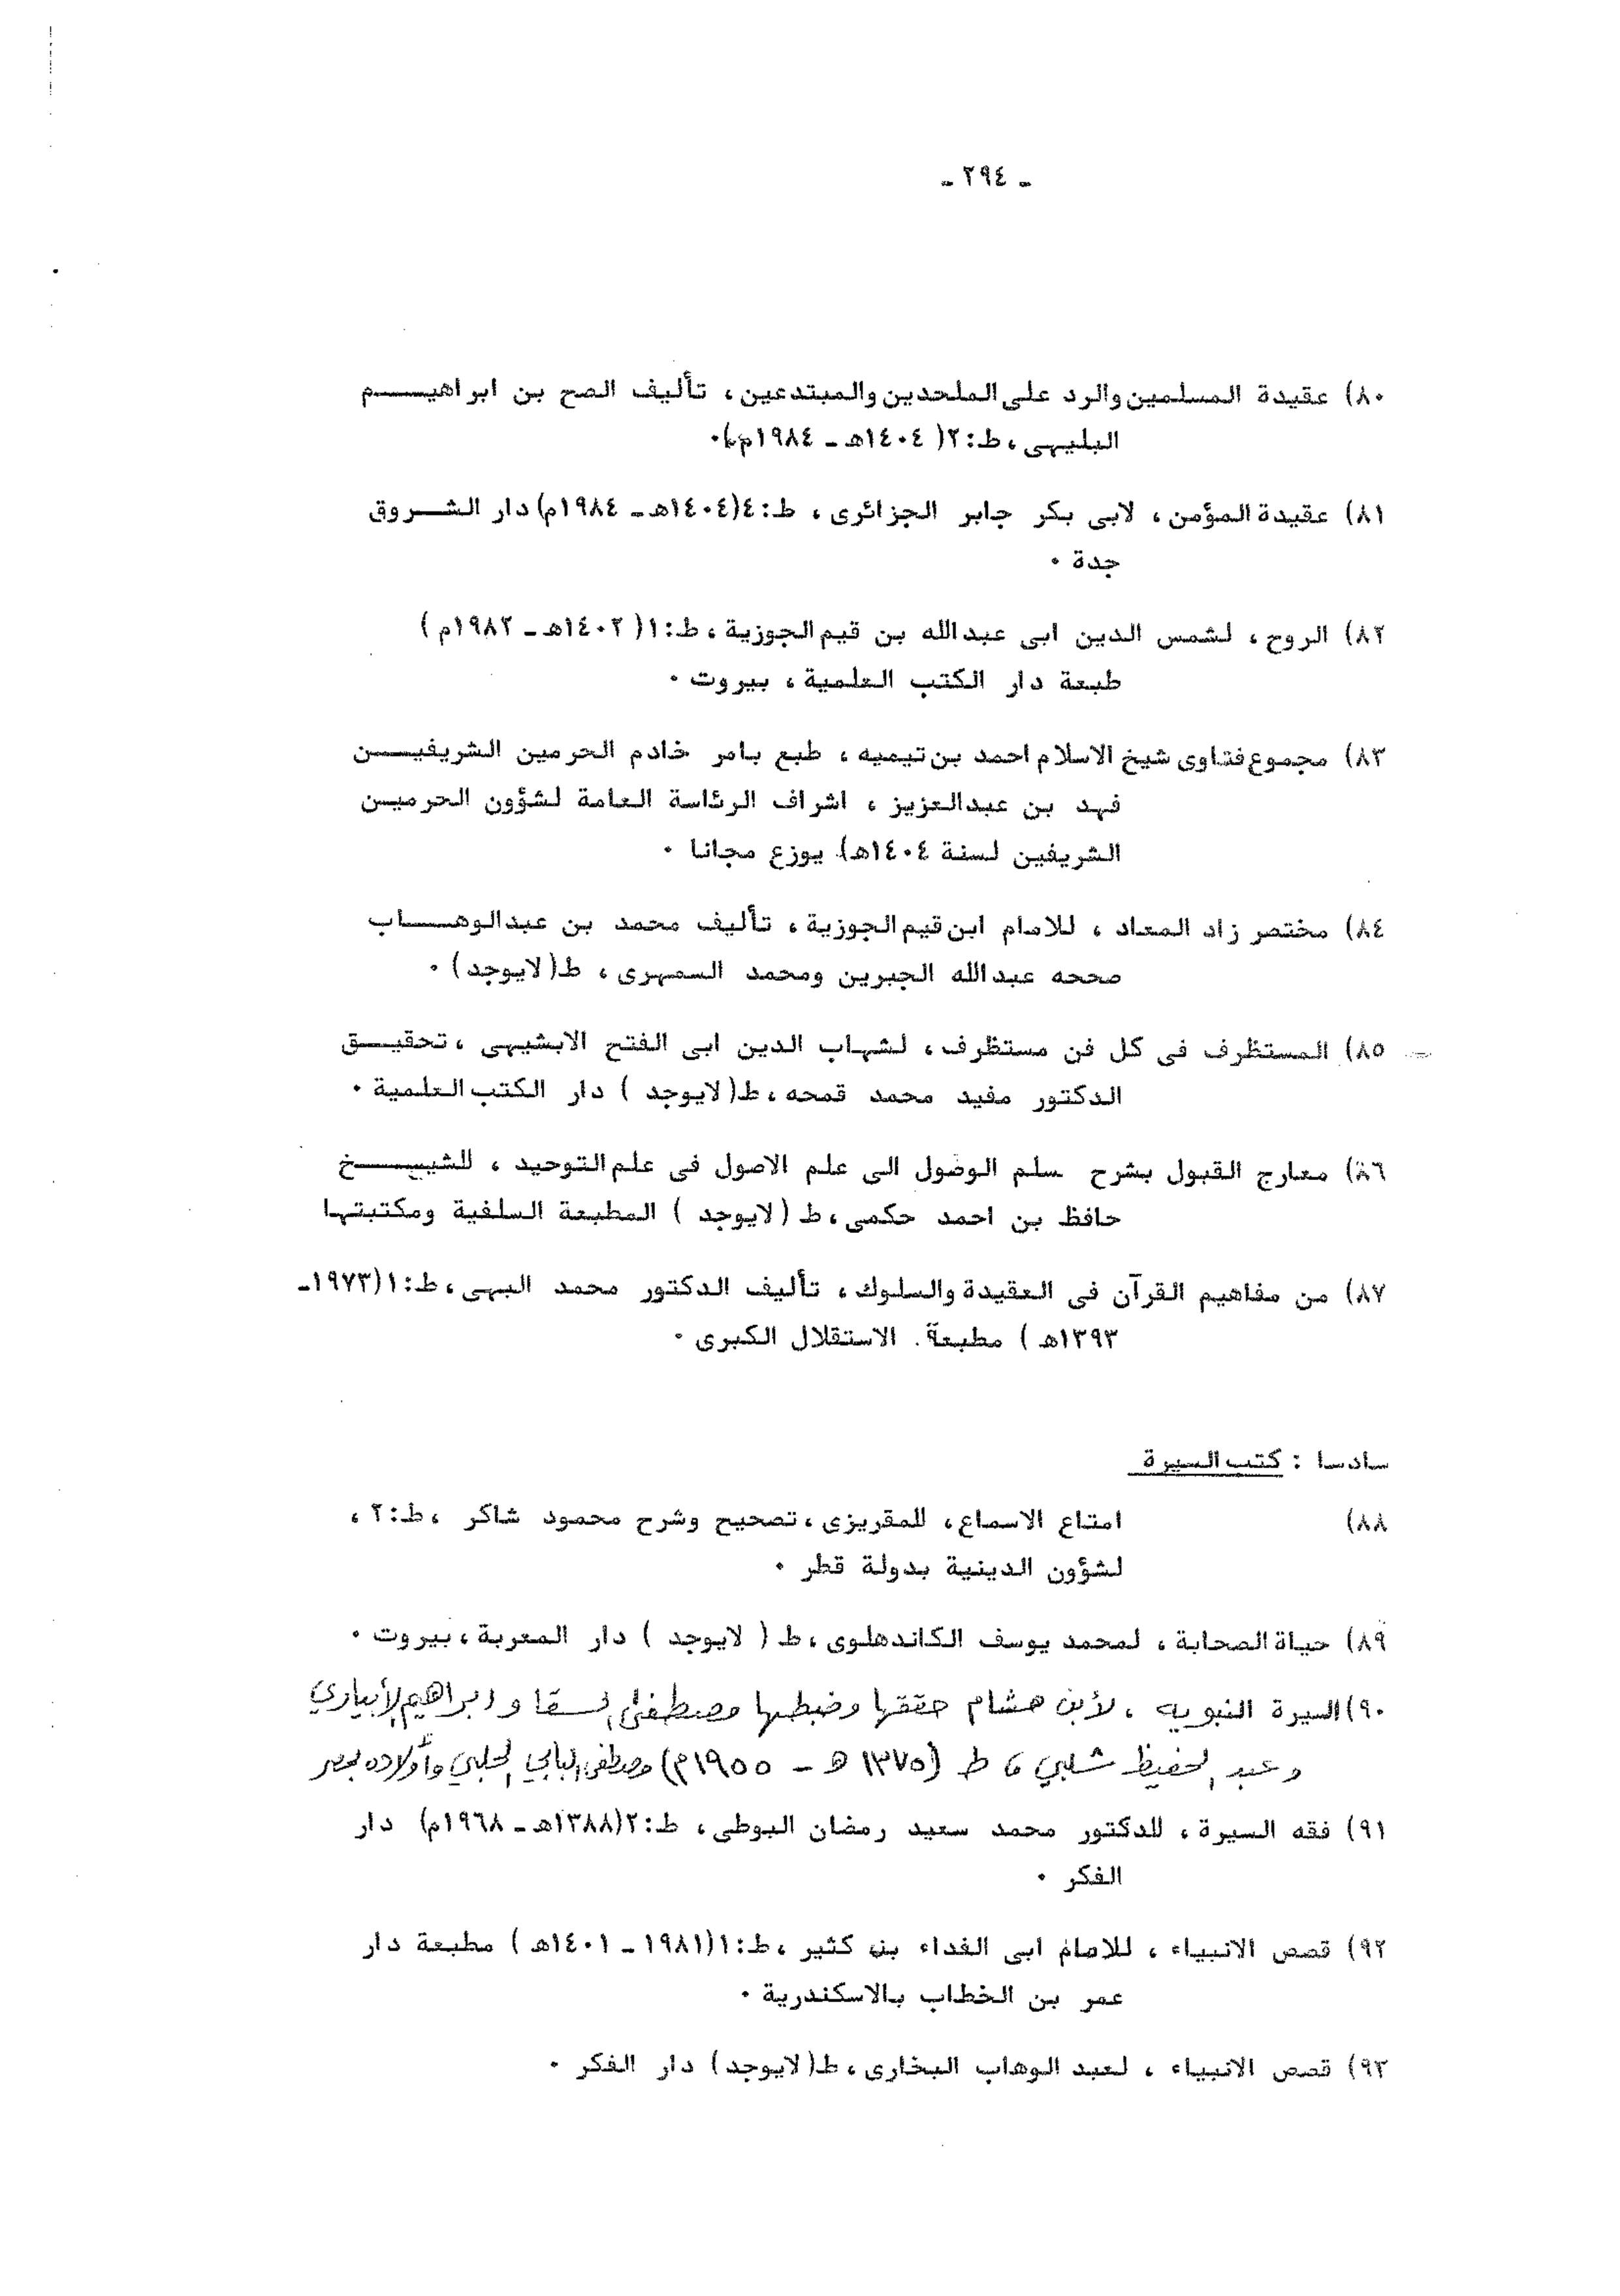 - ٢٩٤ -
٨٠) عقيدة المسلمين والرد على الملحدين والمبتدعين ، تأليف الصح بن ابراهيم
البليهى ، ط:٢( ١٤٠٤هـ - ١٩٨٤م).
٨١) عقيدة المؤمن ، لابى بكر جابر الجزائرى ، ط:٤(١٤٠٤هـ - ١٩٨٤م) دار الشروق
جدة .
٨٢) الروح ، لشمس الدين ابى عبدالله بن قيم الجوزية ، ط:١( ١٤٠٢هـ - ١٩٨٢م )
طبعة دار الكتب العلمية ، بيروت .
٨٣) مجموع فتاوى شيخ الاسلام احمد بن تيميه ، طبع بامر خادم الحرمين الشريفين
فهد بن عبدالعزيز ، اشراف الرئاسة العامة لشؤون الحرمين
الشريفين لسنة ١٤٠٤هـ) يوزع مجانا .
٨٤) مختصر زاد المعاد ، للامام ابن قيم الجوزية ، تأليف محمد بن عبدالوهاب
صححه عبدالله الجبرين ومحمد السمهرى ، ط(لايوجد) .
٨٥) المستظرف فى كل فن مستظرف ، لشهاب الدين ابى الفتح الابشيهى ، تحقيق
الدكتور مفيد محمد قمحه ، ط(لايوجد ) دار الكتب العلمية .
٨٦) معارج القبول بشرح سلم الوضول الى علم الاصول فى علم التوحيد ، للشيخ
حافظ بن احمد حكمى ، ط (لايوجد ) المطبعة السلفية ومكتبتها
٨٧) من مفاهيم القرآن فى العقيدة والسلوك ، تأليف الدكتور محمد البهى ، ط:١(١٩٧٣-
١٣٩٣هـ ) مطبعة . الاستقلال الكبرى .
سادسا : كتب السيرة
٨٨) امتاع الاسماع ، للمقريزى ، تصحيح وشرح محمود شاكر ، ط:٢ ،
لشؤون الدينية بدولة قطر .
٨٩) حياة الصحابة ، لمحمد يوسف الكاندهلوى ، ط ( لايوجد ) دار المعربة ، بيروت .
٩٠) السيرة النبويه ، لأبن هشام حققها وضبطها مصطفى السقا و ابراهيم الأبياري
وعبد الحفيظ شلبي ، ط (١٣٧٥ هـ - ١٩٥٥م) مصطفى البابي الحلبي وأولاده بمصر
٩١) فقه السيرة ، للدكتور محمد سعيد رمضان البوطى ، ط:٢(١٣٨٨هـ - ١٩٦٨م) دار
الفكر .
٩٢) قصص الانبياء ، للامام ابى الفداء بن كثير ، ط:١(١٩٨١ - ١٤٠١هـ ) مطبعة دار
عمر بن الخطاب بالاسكندرية .
٩٣) قصص الانبياء ، لعبد الوهاب البخارى ، ط(لايوجد) دار الفكر .